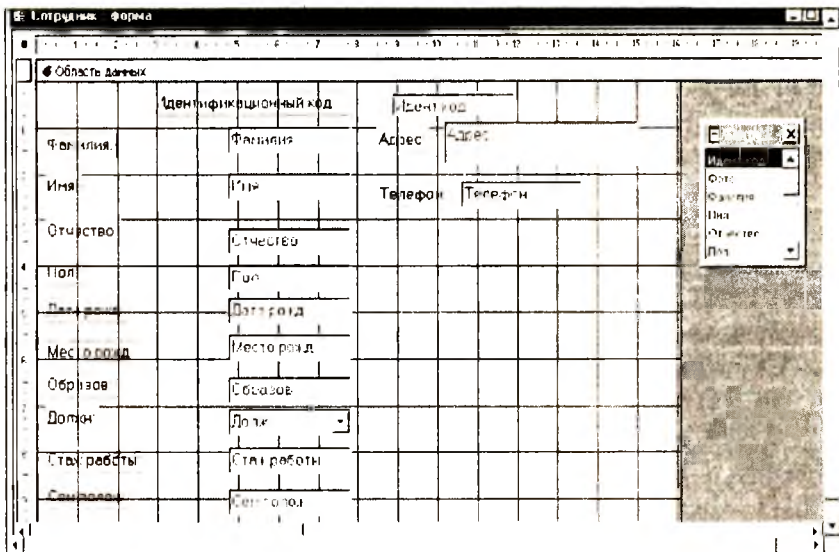 Сотрудник : форма
Область данных
Идентификационный код Идент код
Фамилия. Фамилия Адрес Адрес
Имя Имя Телефон Телефон
Отчество Отчество
Пол Пол
Дата рожд Дата рожд
Место рожд Место рожд
Образов Образов
Должн: Долж
Стаж работы Стаж работы
Сем полож Сем полож
Идент код
Фото
Фамилия
Имя
Отчество
Пол